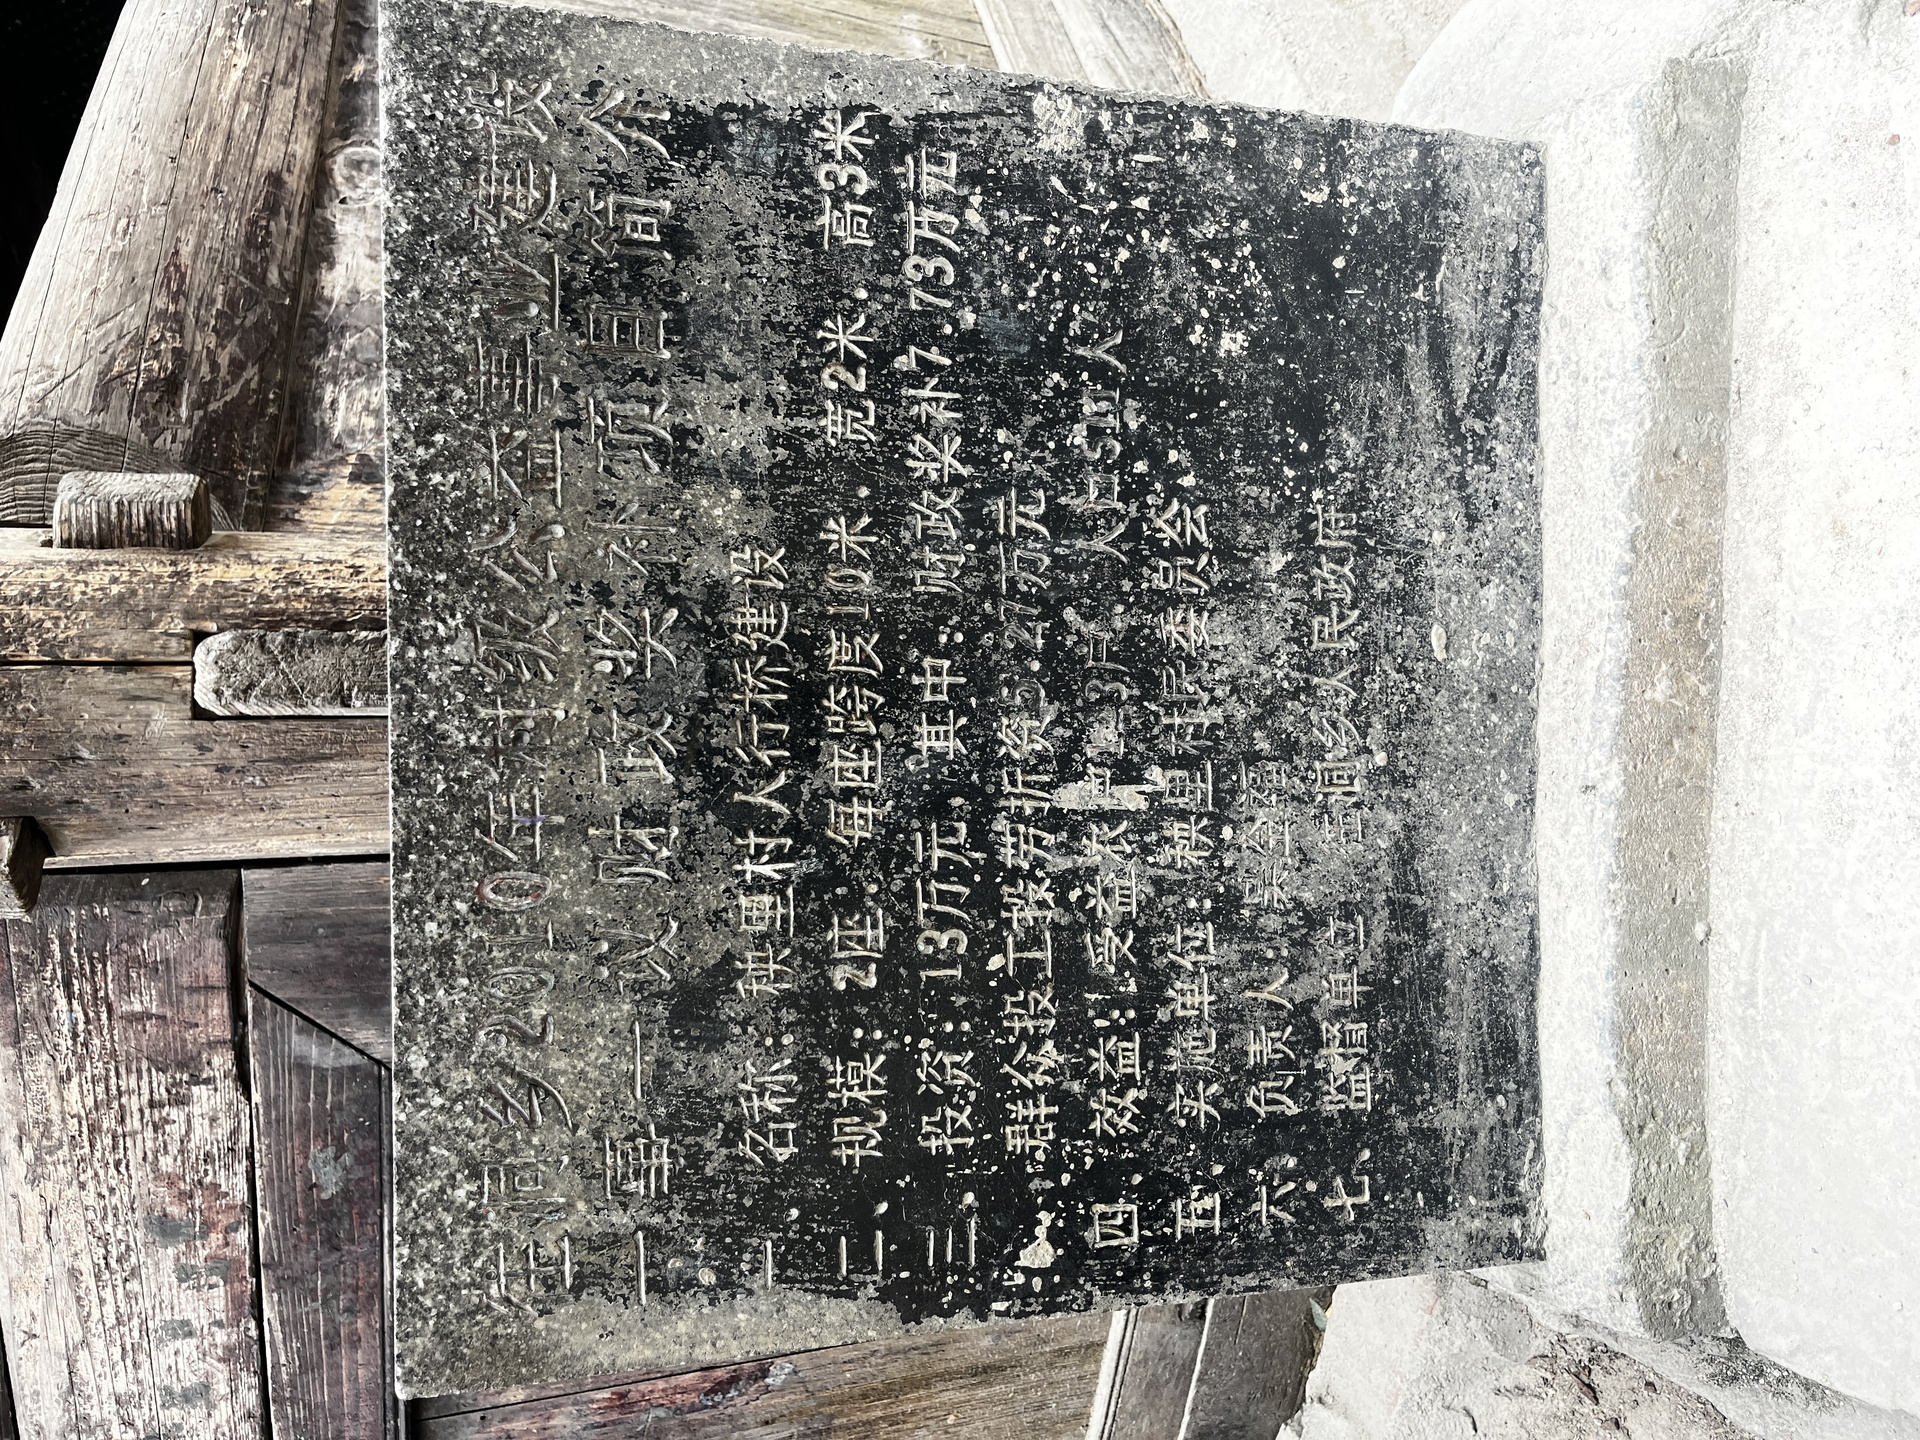 往洞乡2010年村级公益事业建设
一事一议财政奖补项目简介
一、名称：秧里村人行桥建设
二、规模：2座．每座跨度10米．宽2米．高3米
三、投资：13万元．其中：财政奖补7.73万元
群众投工投劳折资5.27万元
四、效益：受益农户 人口 人
五、实施单位：秧里村村委员会
六、负责人：吴全
七、监督单位 往洞乡人民政府